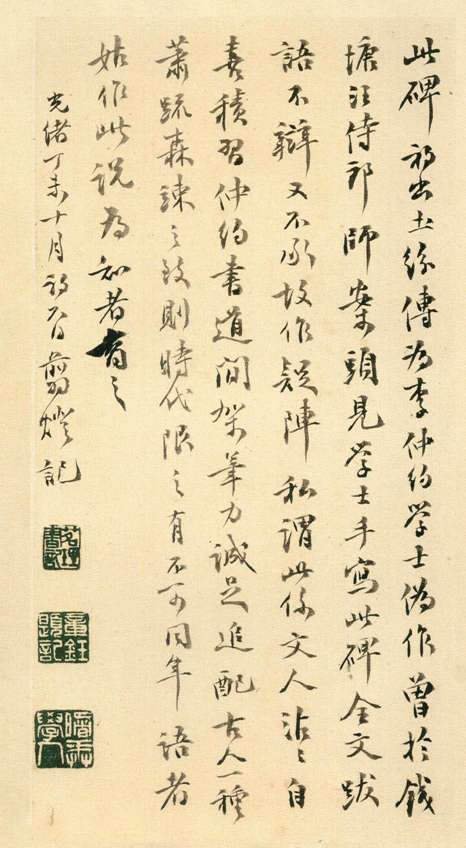 此碑初出土紛傳為李仲約學士偽作曾於錢
塘汪侍郎師案頭見學士手寫此碑全文跋
語不辯又不承故作疑陣私謂此係文人沾〻自
喜積習仲約書道間架筆力誠足追配古人一種
蕭疏森竦之致則時代限之有不可同年語者
姑作此說為知者之
光緒丁未十月初日翦燈記
章鈺題記